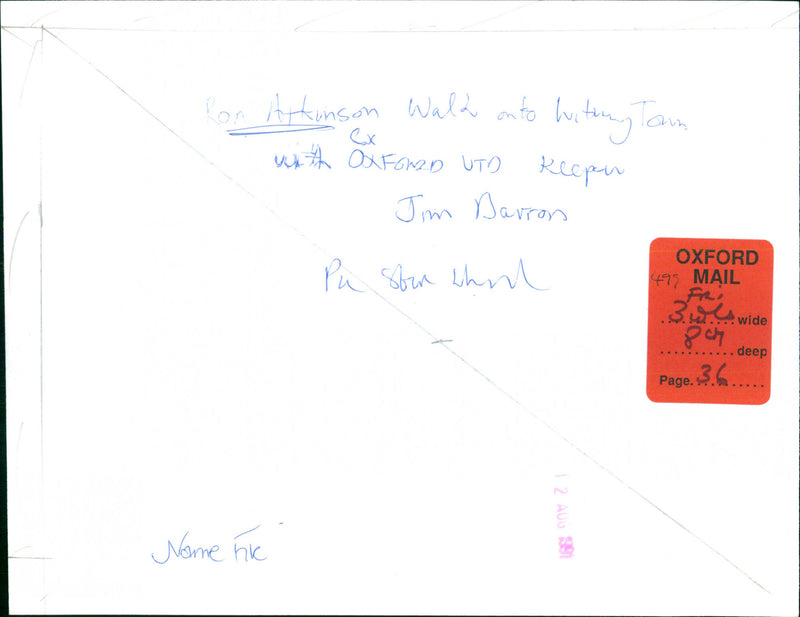 Ron Atkinson Walk onto Witney Town
ex
with OXFORD UTD Keeper
Jim Barron
Pic
Name File
OXFORD
MAIL
499
Fri
3 cols wide
8" deep
Page. 36
12 AUG 1991